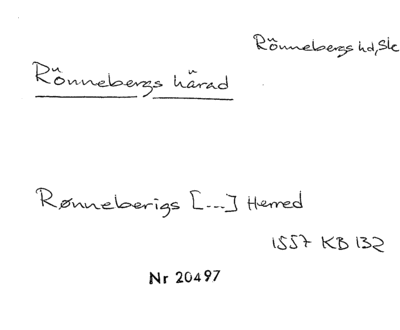 Rönnebergs hd, Sk
Rönnebergs härad
Rønneberigs [---] Herred
1557 KB 132
Nr 20497